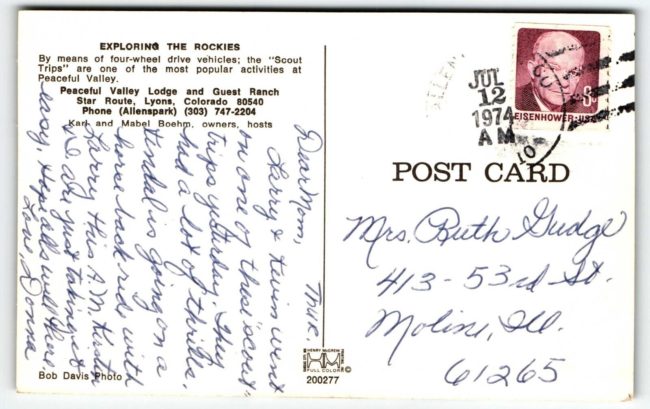 EXPLORING THE ROCKIES
By means of four-wheel drive vehicles; the "Scout
Trips" are one of the most popular activities at
Peaceful Valley.
Peaceful Valley Lodge and Guest Ranch
Star Route, Lyons, Colorado 80540
Phone (Allenspark) (303) 747-2204
Karl and Mabel Boehm, owners, hosts
Thur.
Dear Mom,
Larry & Kevin went
on one of these "scout"
trips yesterday. They
had a lot of thrills.
is going on a
horse back ride with
Larry this A.M.
& I are just taking it
easy. Hope all's well there.
Love, Donna
Bob Davis Photo
HENRY McGREW
FULL COLOR
200277
ALLEN
JUL
12
1974
AM
EISENHOWER·USA
8¢
POST CARD
Mrs. Ruth Gudge
413-53rd St.
Moline, Ill.
61265